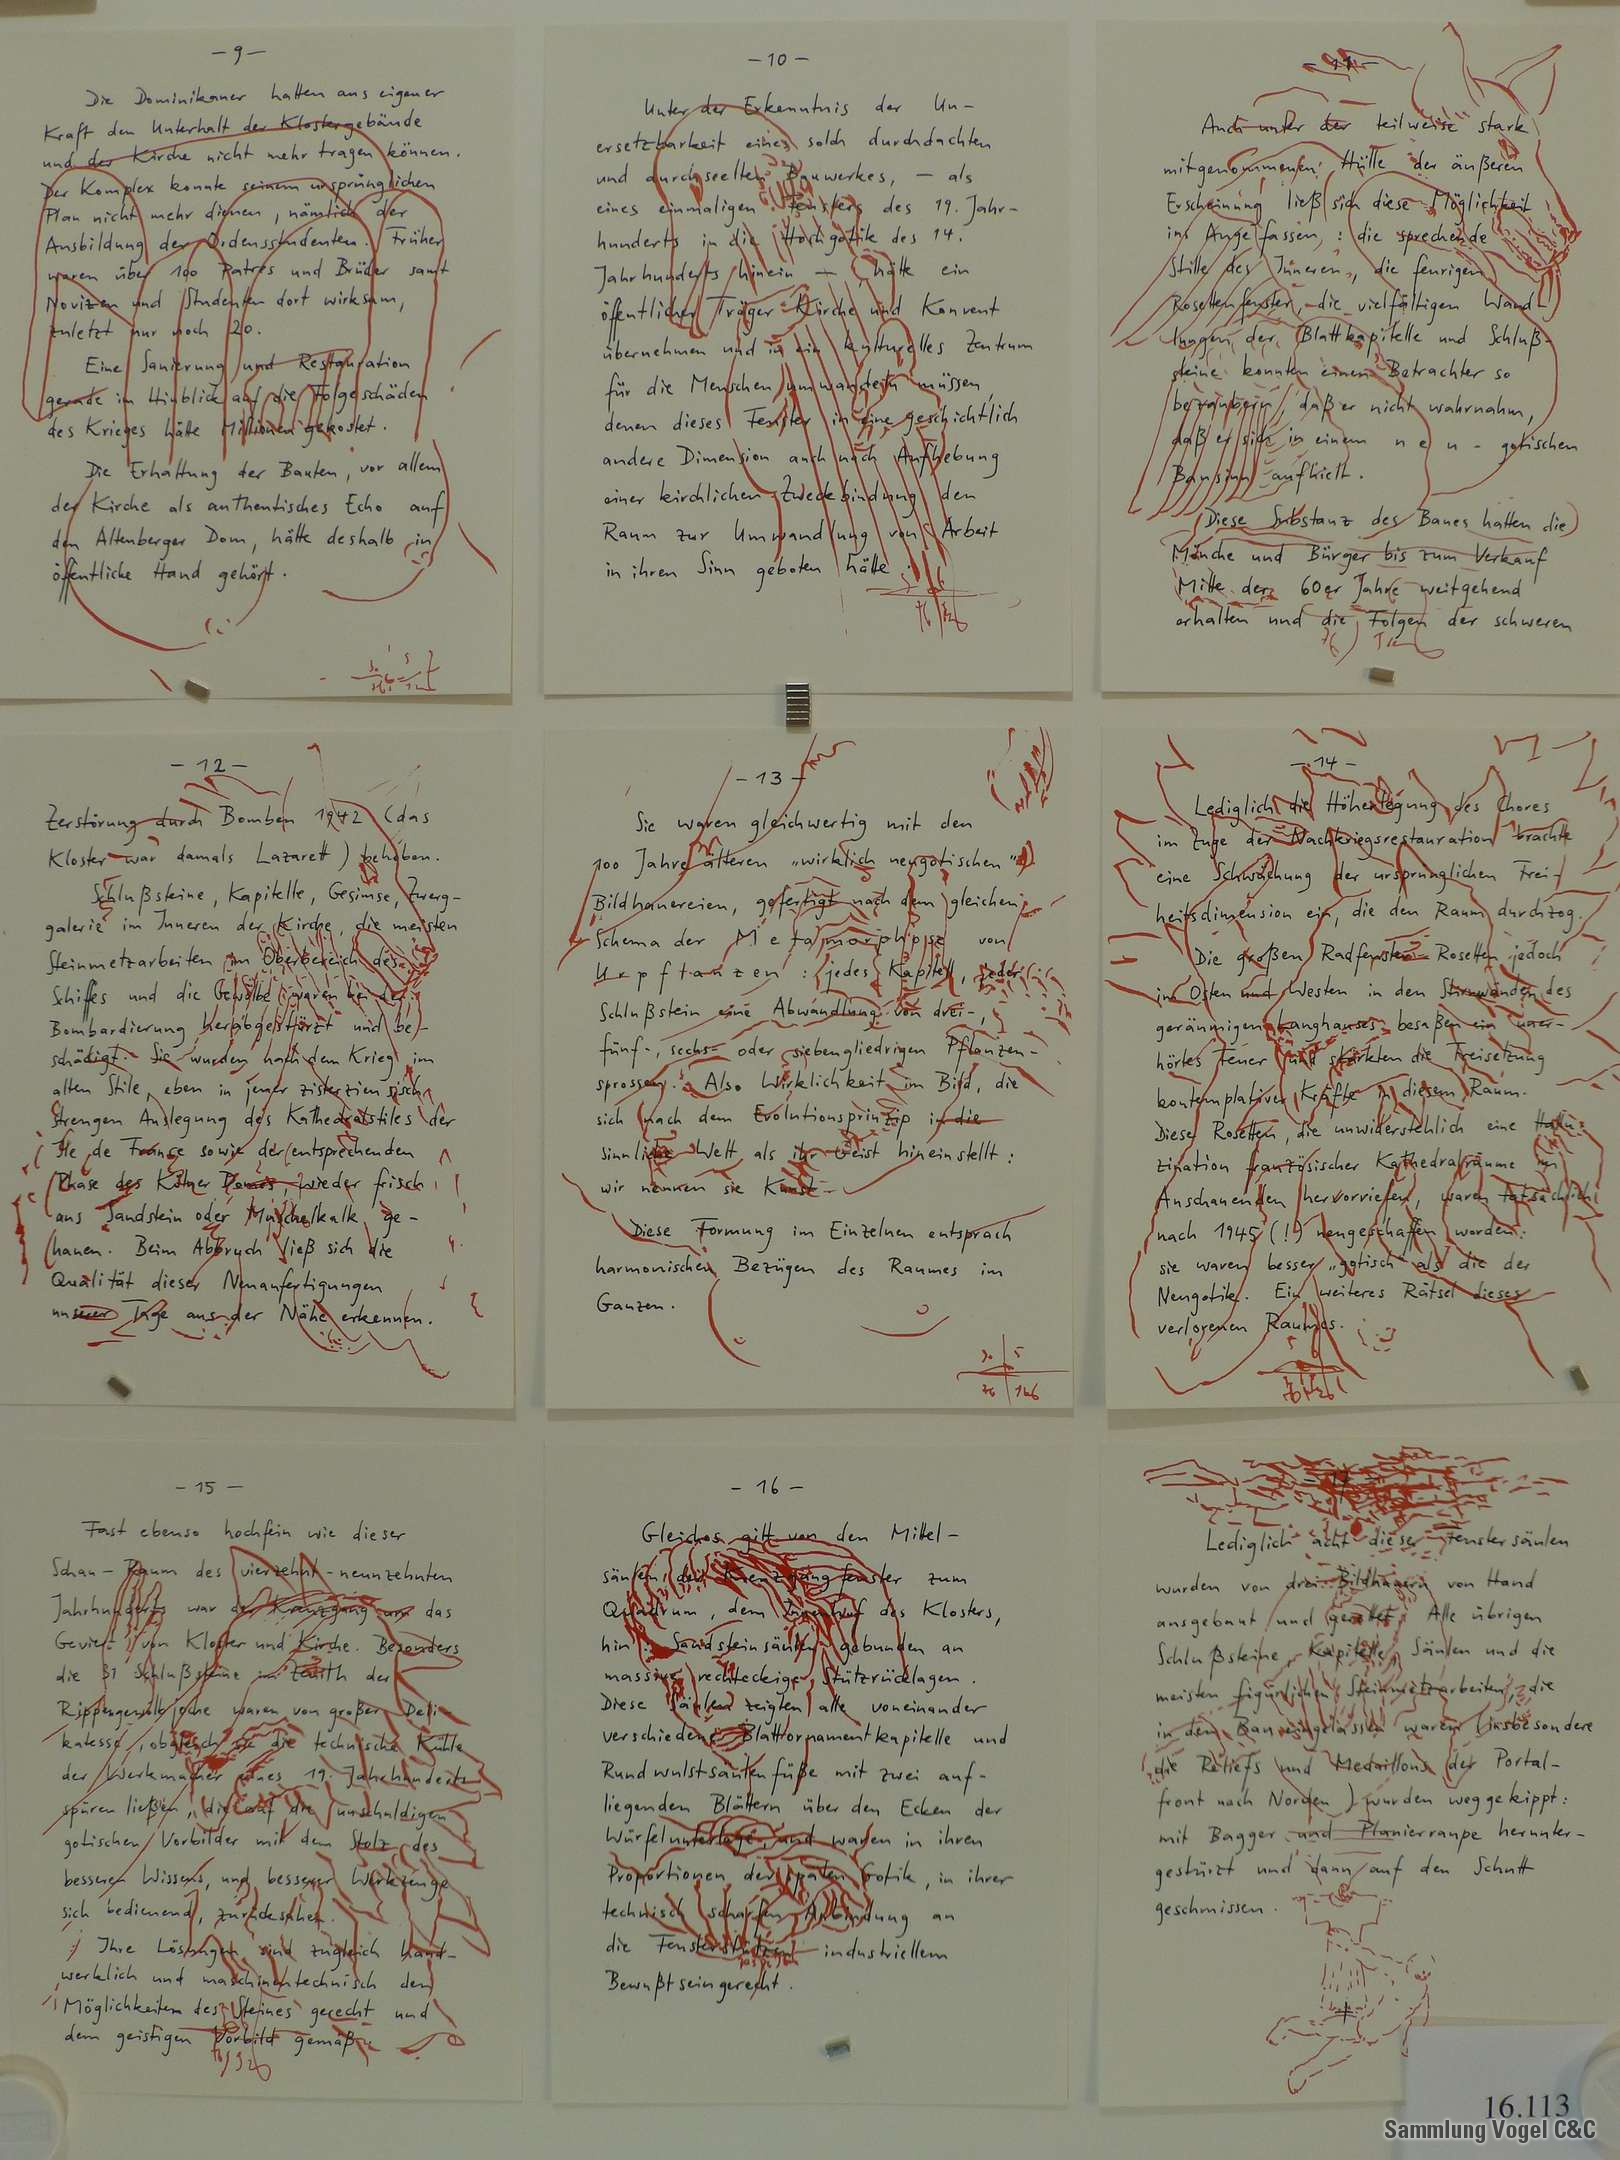 - 9 -
Die Dominikaner hatten aus eigener
Kraft den Unterhalt der Klostergebäude
und der Kirche nicht mehr tragen können.
Der Komplex konnte seinem ursprünglichen
Plan nicht mehr dienen, nämlich der
Ausbildung der Ordensstudenten. Früher
waren über 100 Patres und Brüder samt
Novizen und Studenten dort wirksam,
zuletzt nur noch 20.
Eine Sanierung und Restauration
gerade im Hinblick auf die Folgeschäden
des Krieges hätte Millionen gekostet.
Die Erhaltung der Bauten, vor allem
der Kirche als authentisches Echo auf
den Altenberger Dom, hätte deshalb in
öffentliche Hand gehört.
- 10 -
Unter der Erkenntnis der Un-
ersetzbarkeit eines solch durchdachten
und durchseelten Bauwerkes, - als
eines einmaligen Fensters des 19. Jahr-
hunderts in die Hochgotik des 14.
Jahrhunderts hinein -, hätte ein
öffentlicher Träger Kirche und Konvent
übernehmen und in ein kulturelles Zentrum
für die Menschen umwandeln müssen,
denen dieses Fenster in eine geschichtlich
andere Dimension auch nach Aufhebung
einer kirchlichen Zweckbindung den
Raum zur Umwandlung von Arbeit
in ihren Sinn geboten hätte.
- 11 -
Auch unter der teilweise stark
mitgenommenen Hülle der äußeren
Erscheinung ließ sich diese Möglichkeit
ins Auge fassen,: die sprechende
Stille des Inneren, die feurigen
Rosettenfenster, die vielfältigen Wand-
lungen der Blattkapitelle und Schluß-
steine konnten einen Betrachter so
bezaubern, daß er nicht wahrnahm,
daß er sich in einem n e u - gotischen
Bausinn aufhielt.
Diese Substanz des Baues hatten die
Mönche und Bürger bis zum Verkauf
Mitte der 60er Jahre weitgehend
erhalten und die Folgen der schweren
- 12 -
Zerstörung durch Bomben 1942 (das
Kloster war damals Lazarett) behoben.
Schlußsteine, Kapitelle, Gesimse, Zwerg-
galerie im Inneren der Kirche, die meisten
Steinmetzarbeiten im Oberbereich des
Schiffes und die Gewölbe waren bei der
Bombardierung herabgestürzt und be-
schädigt. Sie wurden nach dem Krieg im
alten Stile, eben in jener zisterziensisch
strengen Auslegung des Kathedralstiles der
Ile de France sowie der entsprechenden
Phase des Kölner Domes, wieder frisch
aus Sandstein oder Muschelkalk ge-
hauen. Beim Abbruch ließ sich die
Qualität dieser Neuanfertigungen
unserer Tage aus der Nähe erkennen.
- 13 -
Sie waren gleichwertig mit den
100 Jahre älteren „wirklich neugotischen"
Bildhauereien, gefertigt nach dem gleichen
Schema der M e t a m o r p h o s e von
U r p f l a n z e n : jedes Kapitell, jeder
Schlußstein eine Abwandlung von drei-,
fünf-, sechs- oder siebengliedrigen Pflanzen-
sprossen. Also Wirklichkeit im Bild, die
sich nach dem Evolutionsprinzip in die
sinnliche Welt als ihr Geist hineinstellt:
wir nennen sie Kunst.
Diese Formung im Einzelnen entsprach
harmonischen Bezügen des Raumes im
Ganzen.
30 5
76 126
- 14 -
Lediglich die Höherlegung des Chores
im Zuge der Nachkriegsrestauration brachte
eine Schwächung der ursprünglichen Frei-
heitsdimension ein, die den Raum durchzog.
Die großen Radfenster-Rosetten jedoch
im Osten und Westen in den Stirnwänden des
geräumigen Langhauses besaßen ein uner-
hörtes Feuer und stärkten die Freisetzung
kontemplativer Kräfte in diesem Raum.
Diese Rosetten, die unwiderstehlich eine Hallu-
zination französischer Kathedralräume im
Anschauenden hervorriefen, waren tatsächlich
nach 1945 (!) neugeschaffen worden:
sie waren besser „gotisch" als die der
Neugotik. Ein weiteres Rätsel dieses
verlorenen Raumes.
- 15 -
Fast ebenso hochfein wie dieser
Schau-Raum des vierzehnt-neunzehnten
Jahrhunderts war der Kreuzgang um das
Geviert von Kloster und Kirche. Besonders
die 31 Schlußsteine im Zenith der
Rippengewölbejoche waren von großer Deli-
katesse, obgleich sie die technische Kühle
der Werkmacher eines 19. Jahrhunderts
spüren ließen, die auf die unschuldigen
gotischen Vorbilder mit dem Stolz des
besseren Wissens, und besserer Werkzeuge
sich bedienend, zurücksahen.
Ihre Lösungen sind zugleich hand-
werklich und maschinentechnisch den
Möglichkeiten des Steines gerecht und
dem geistigen Vorbild gemäß.
- 16 -
Gleiches gilt von den Mittel-
säulen der Kreuzgangfenster zum
Quadrum, dem Innenhof des Klosters,
hin: Sandsteinsäulen gebunden an
massive rechteckige Stützrücklagen.
Diese Säulen zeigten alle voneinander
verschiedene Blattornamentkapitelle und
Rundwulstsäulenfüße mit zwei auf-
liegenden Blättern über den Ecken der
Würfelunterlage, und waren in ihren
Proportionen der späten Gotik, in ihrer
technisch scharfen Anbindung an
die Fensterstützen industriellem
Bewußtsein gerecht.
- 17 -
Lediglich acht dieser Fenstersäulen
wurden von drei Bildhauern von Hand
ausgebaut und gerettet. Alle übrigen
Schlußsteine, Kapitelle, Säulen und die
meisten figürlichen Steinmetzarbeiten, die
in den Bau eingelassen waren (insbesondere
die Reliefs und Medaillons der Portal-
front nach Norden) wurden weggekippt:
mit Bagger und Planierraupe herunter-
gestürzt und dann auf den Schutt
geschmissen.
16.113
Sammlung Vogel C&C